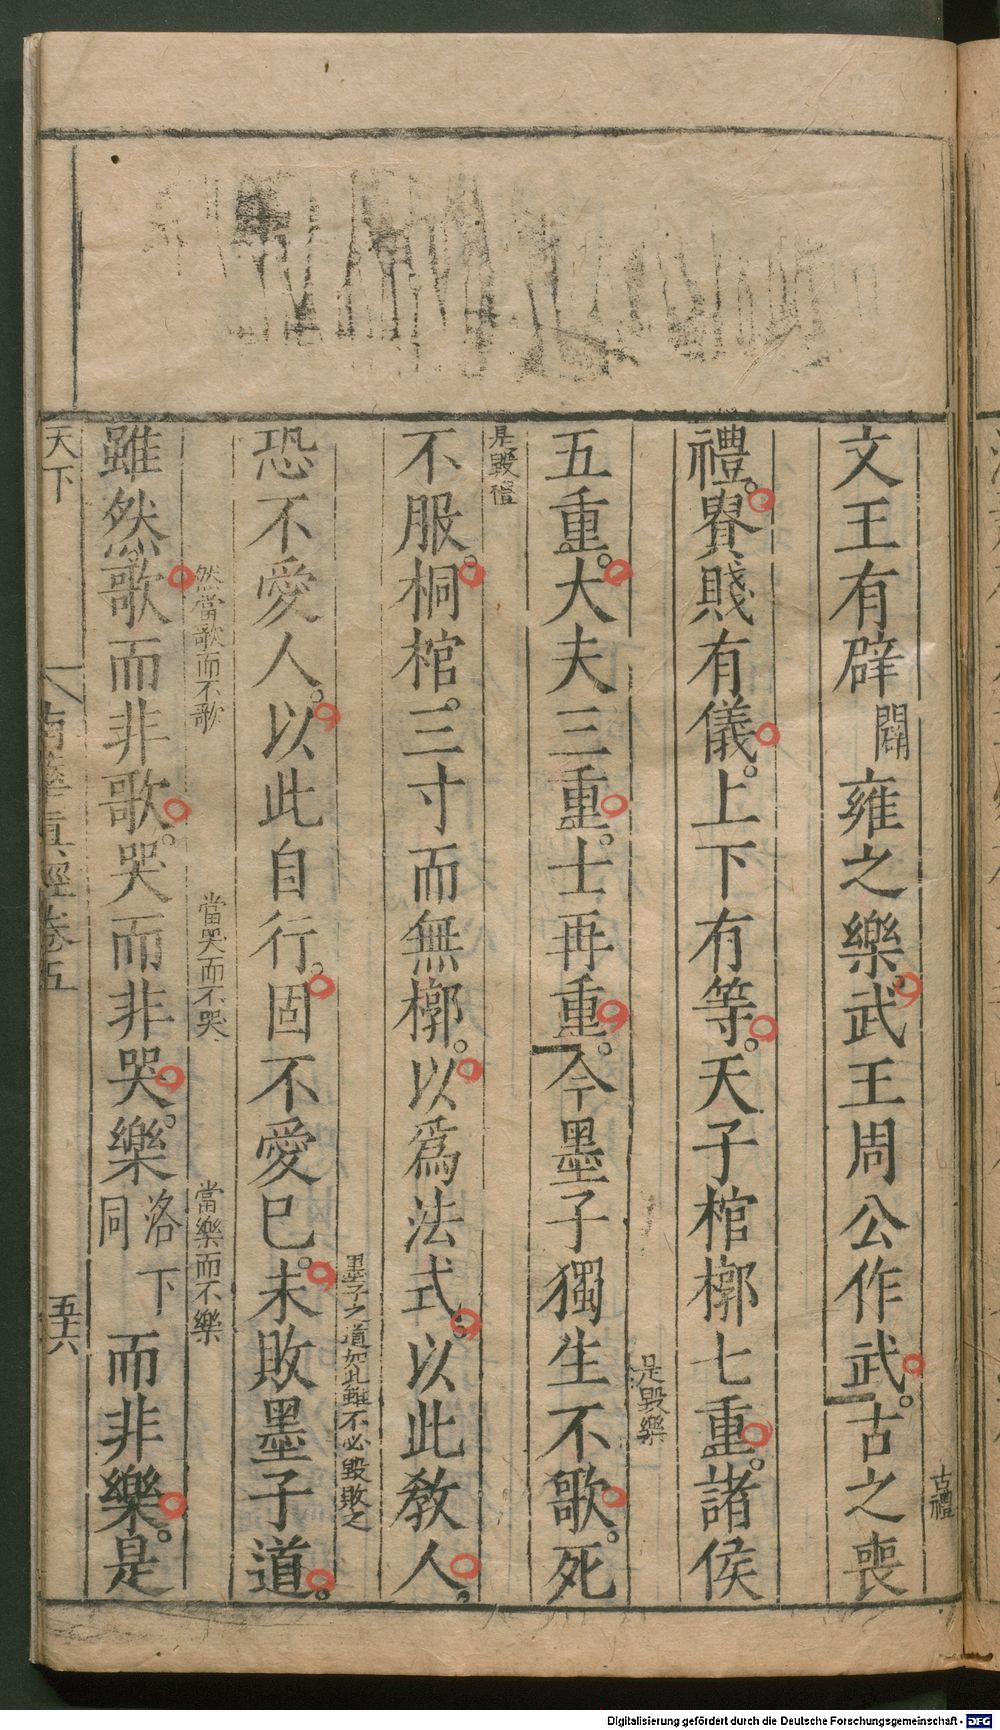 古禮
文王有辟闢雍之樂。武王周公作武。古之喪
禮。貴賤有儀。上下有等。天子棺槨七重。諸侯
是毀樂
五重。大夫三重。士再重。今墨子獨生不歌。死
是毀禮
不服。桐棺三寸而無槨。以爲法式。以此教人。
墨子之道如此雖不必毀敗之
恐不愛人。以此自行。固不愛己。未敗墨子道。
然當歌而不歌 當哭而不哭 當樂而不樂
雖然。歌而非歌。哭而非哭。樂洛下同而非樂。是
天下 南華眞經卷五 五十六
Digitalisierung gefördert durch die Deutsche Forschungsgemeinschaft - DFG